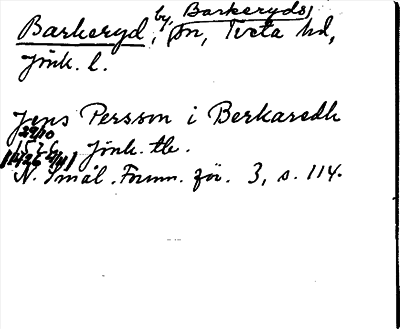 Barkeryd, by, Barkeryds sn, Tveta hd,
Jönk. l.
Jens Persson i Berkaredh
29/10
Jönk. tb.
N. Smål. Fornm. för. 3, s. 114.